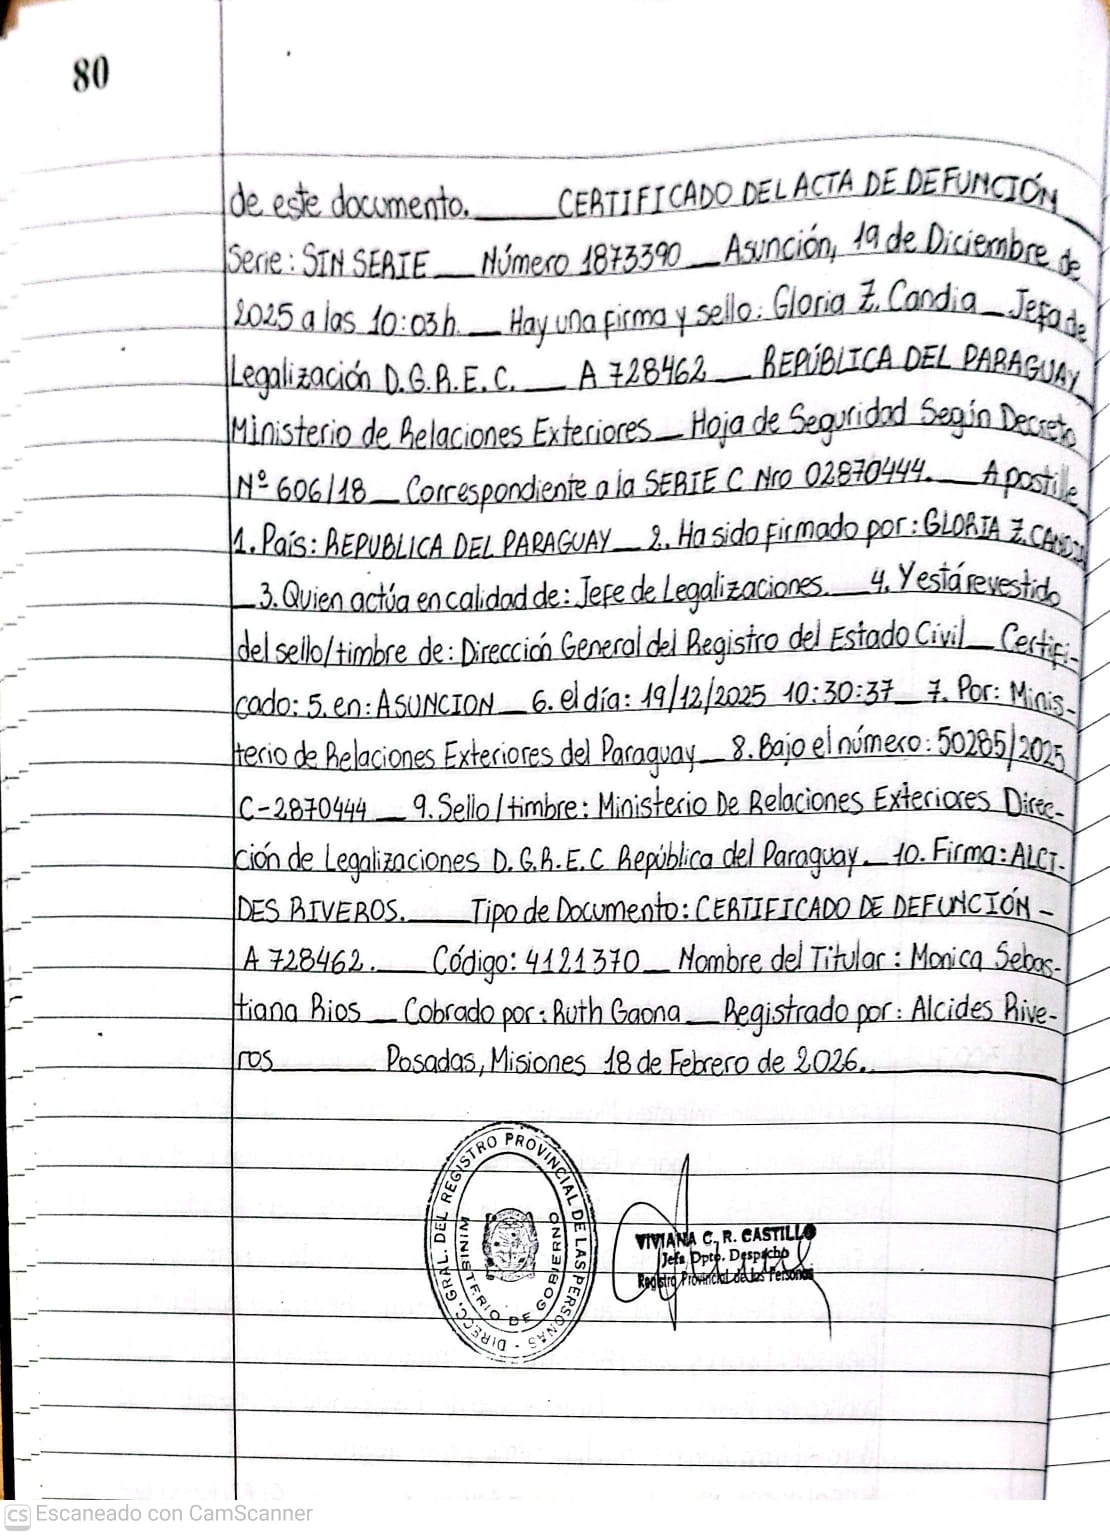 80
de este documento.____CERTIFICADO DEL ACTA DE DEFUNCIÓN
Serie: SIN SERIE __ Número 1873390 __ Asunción, 19 de Diciembre de
2025 a las 10:03h. __ Hay una firma y sello: Gloria Z. Candia __ Jefa de
Legalización D.G.R.E.C. ___ A 728462 __ REPÚBLICA DEL PARAGUAY
Ministerio de Relaciones Exteriores __ Hoja de Seguridad Según Decreto
Nº 606/18 __ Correspondiente a la SERIE C Nro 02870444. ___ Apostille
1. País: REPUBLICA DEL PARAGUAY __ 2. Ha sido firmado por: GLORIA Z. CANDIA
__ 3. Quien actúa en calidad de: Jefe de Legalizaciones. ___ 4. Y está revestido
del sello/timbre de: Dirección General del Registro del Estado Civil __ Certifi-
cado: 5. en: ASUNCION __ 6. el día: 19/12/2025 10:30:37 __ 7. Por: Minis-
terio de Relaciones Exteriores del Paraguay __ 8. Bajo el número: 50285/2025
C-2870444 __ 9. Sello/timbre: Ministerio De Relaciones Exteriores Direc-
ción de Legalizaciones D.G.R.E.C República del Paraguay __ 10. Firma: ALCI-
DES RIVEROS. ____ Tipo de Documento: CERTIFICADO DE DEFUNCIÓN -
A 728462. ___ Código: 4121370 __ Nombre del Titular: Monica Sebas-
tiana Rios __ Cobrado por: Ruth Gaona __ Registrado por: Alcides Rive-
ros ______ Posadas, Misiones 18 de Febrero de 2026. ________
DIRECC. GRAL. DEL REGISTRO PROVINCIAL DE LAS PERSONAS -
MINISTERIO DE GOBIERNO
VIVIANA C. R. CASTILLO
Jefa Dpto. Despacho
Registro Provincial de las Personas
CS Escaneado con CamScanner